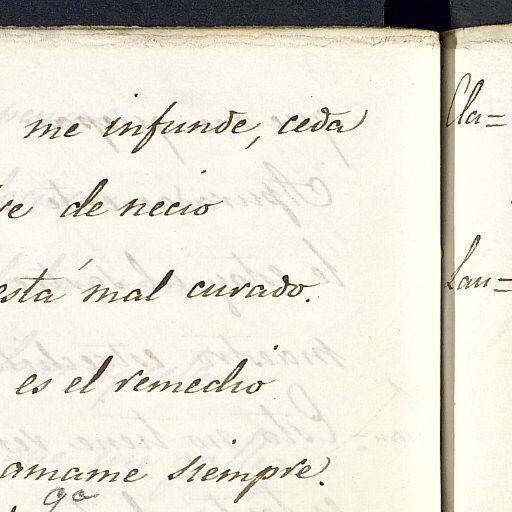 me infunde, ceda
de necio
está mal curado.
es el remedio
amame siempre.
Cla=
Lau=